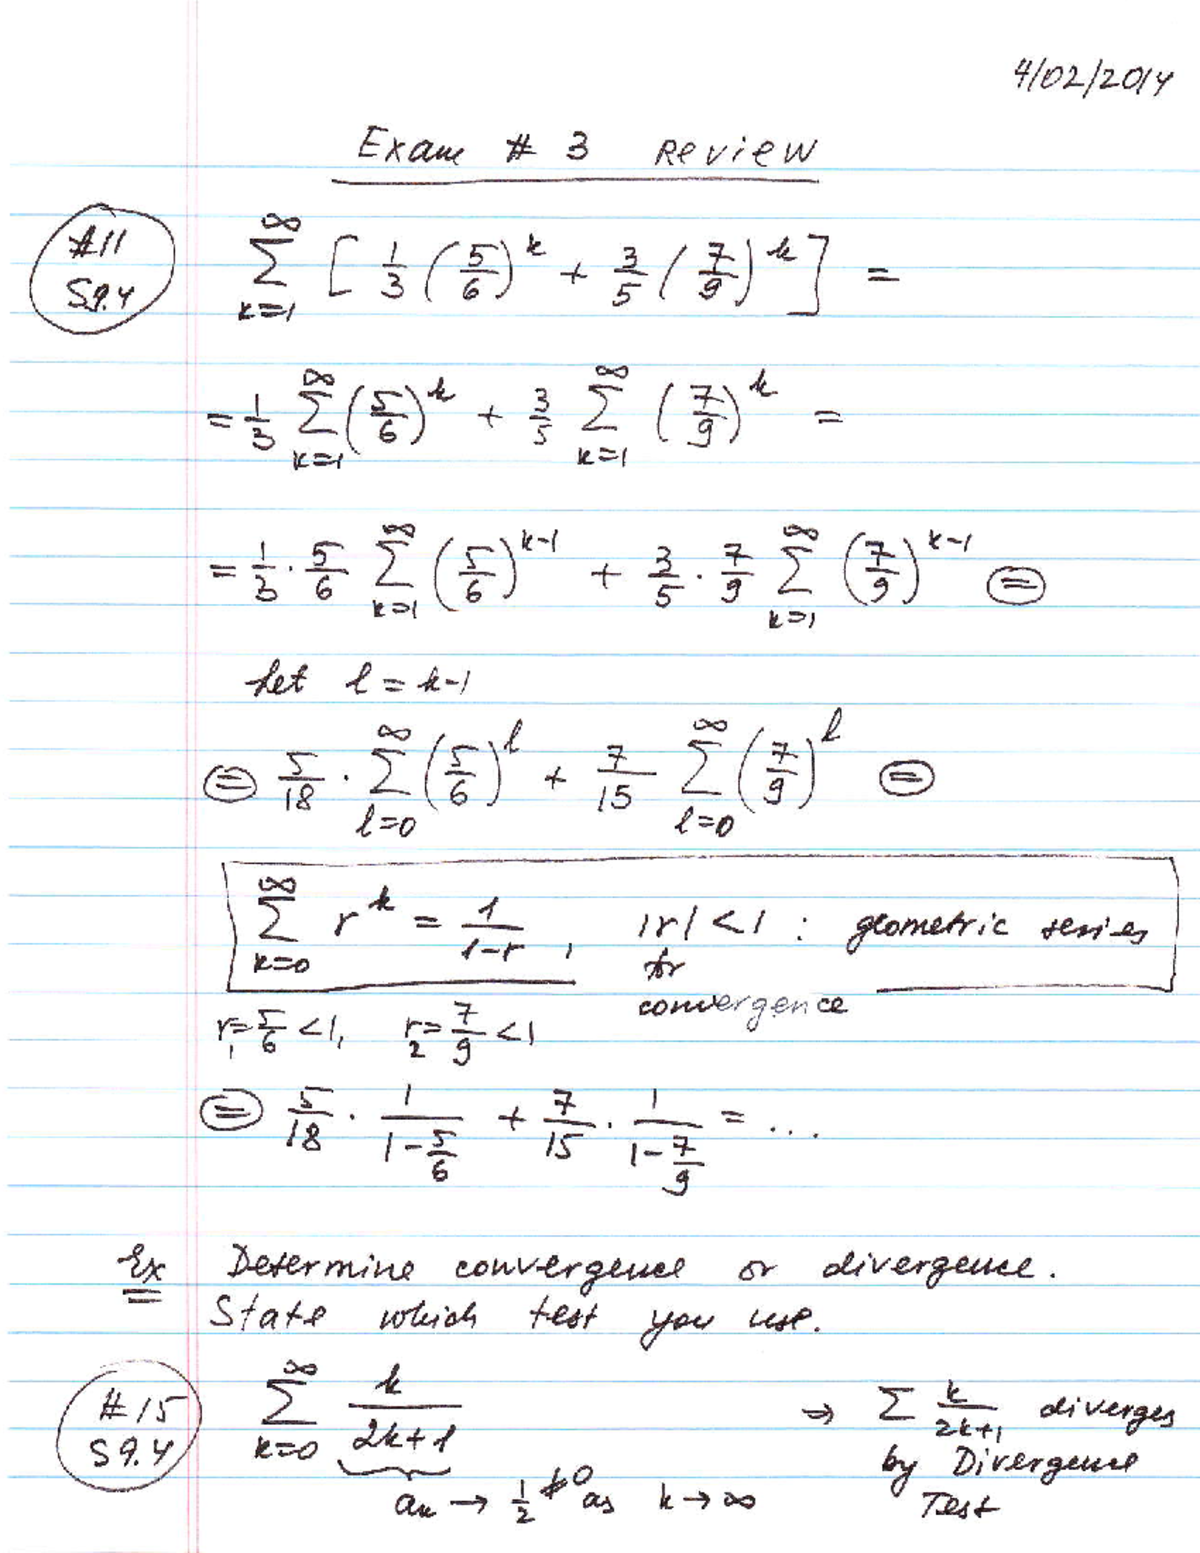 4/02/2014
Exam # 3 Review
#11
S9.4
∑_{k=1}^{∞} [ 1/3 (5/6)^k + 3/5 (7/9)^k ] =
= 1/3 ∑_{k=1}^{∞} (5/6)^k + 3/5 ∑_{k=1}^{∞} (7/9)^k =
= 1/3 · 5/6 ∑_{k=1}^{∞} (5/6)^{k-1} + 3/5 · 7/9 ∑_{k=1}^{∞} (7/9)^{k-1} =
Let l = k-1
= 5/18 · ∑_{l=0}^{∞} (5/6)^l + 7/15 ∑_{l=0}^{∞} (7/9)^l =
∑_{k=0}^{∞} r^k = 1/(1-r), |r| < 1 : geometric series
for
convergence
r_1 = 5/6 < 1, r_2 = 7/9 < 1
= 5/18 · 1/(1 - 5/6) + 7/15 · 1/(1 - 7/9) = ...
Ex Determine convergence or divergence.
State which test you use.
#15
S9.4
∑_{k=0}^{∞} k/(2k+1) ⇒ ∑ k/(2k+1) diverges
by Divergence
Test
a_k → 1/2 ≠ 0 as k → ∞